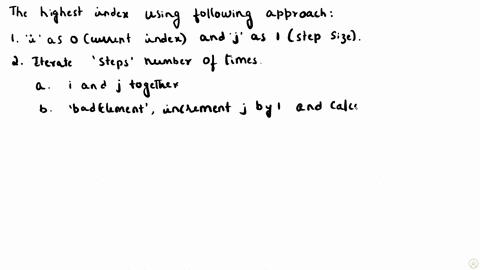 The highest index using following approach:
1. 'i' as 0 (current index) and 'j' as 1 (step size).
2. Iterate 'steps' number of times.
a. i and j together
b. 'badElement', increment j by 1 and calc